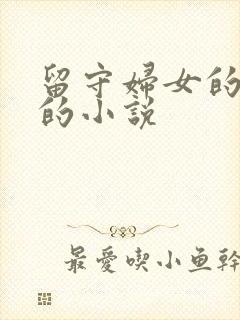 留守婦女的
的小说
最愛喫小鱼幹